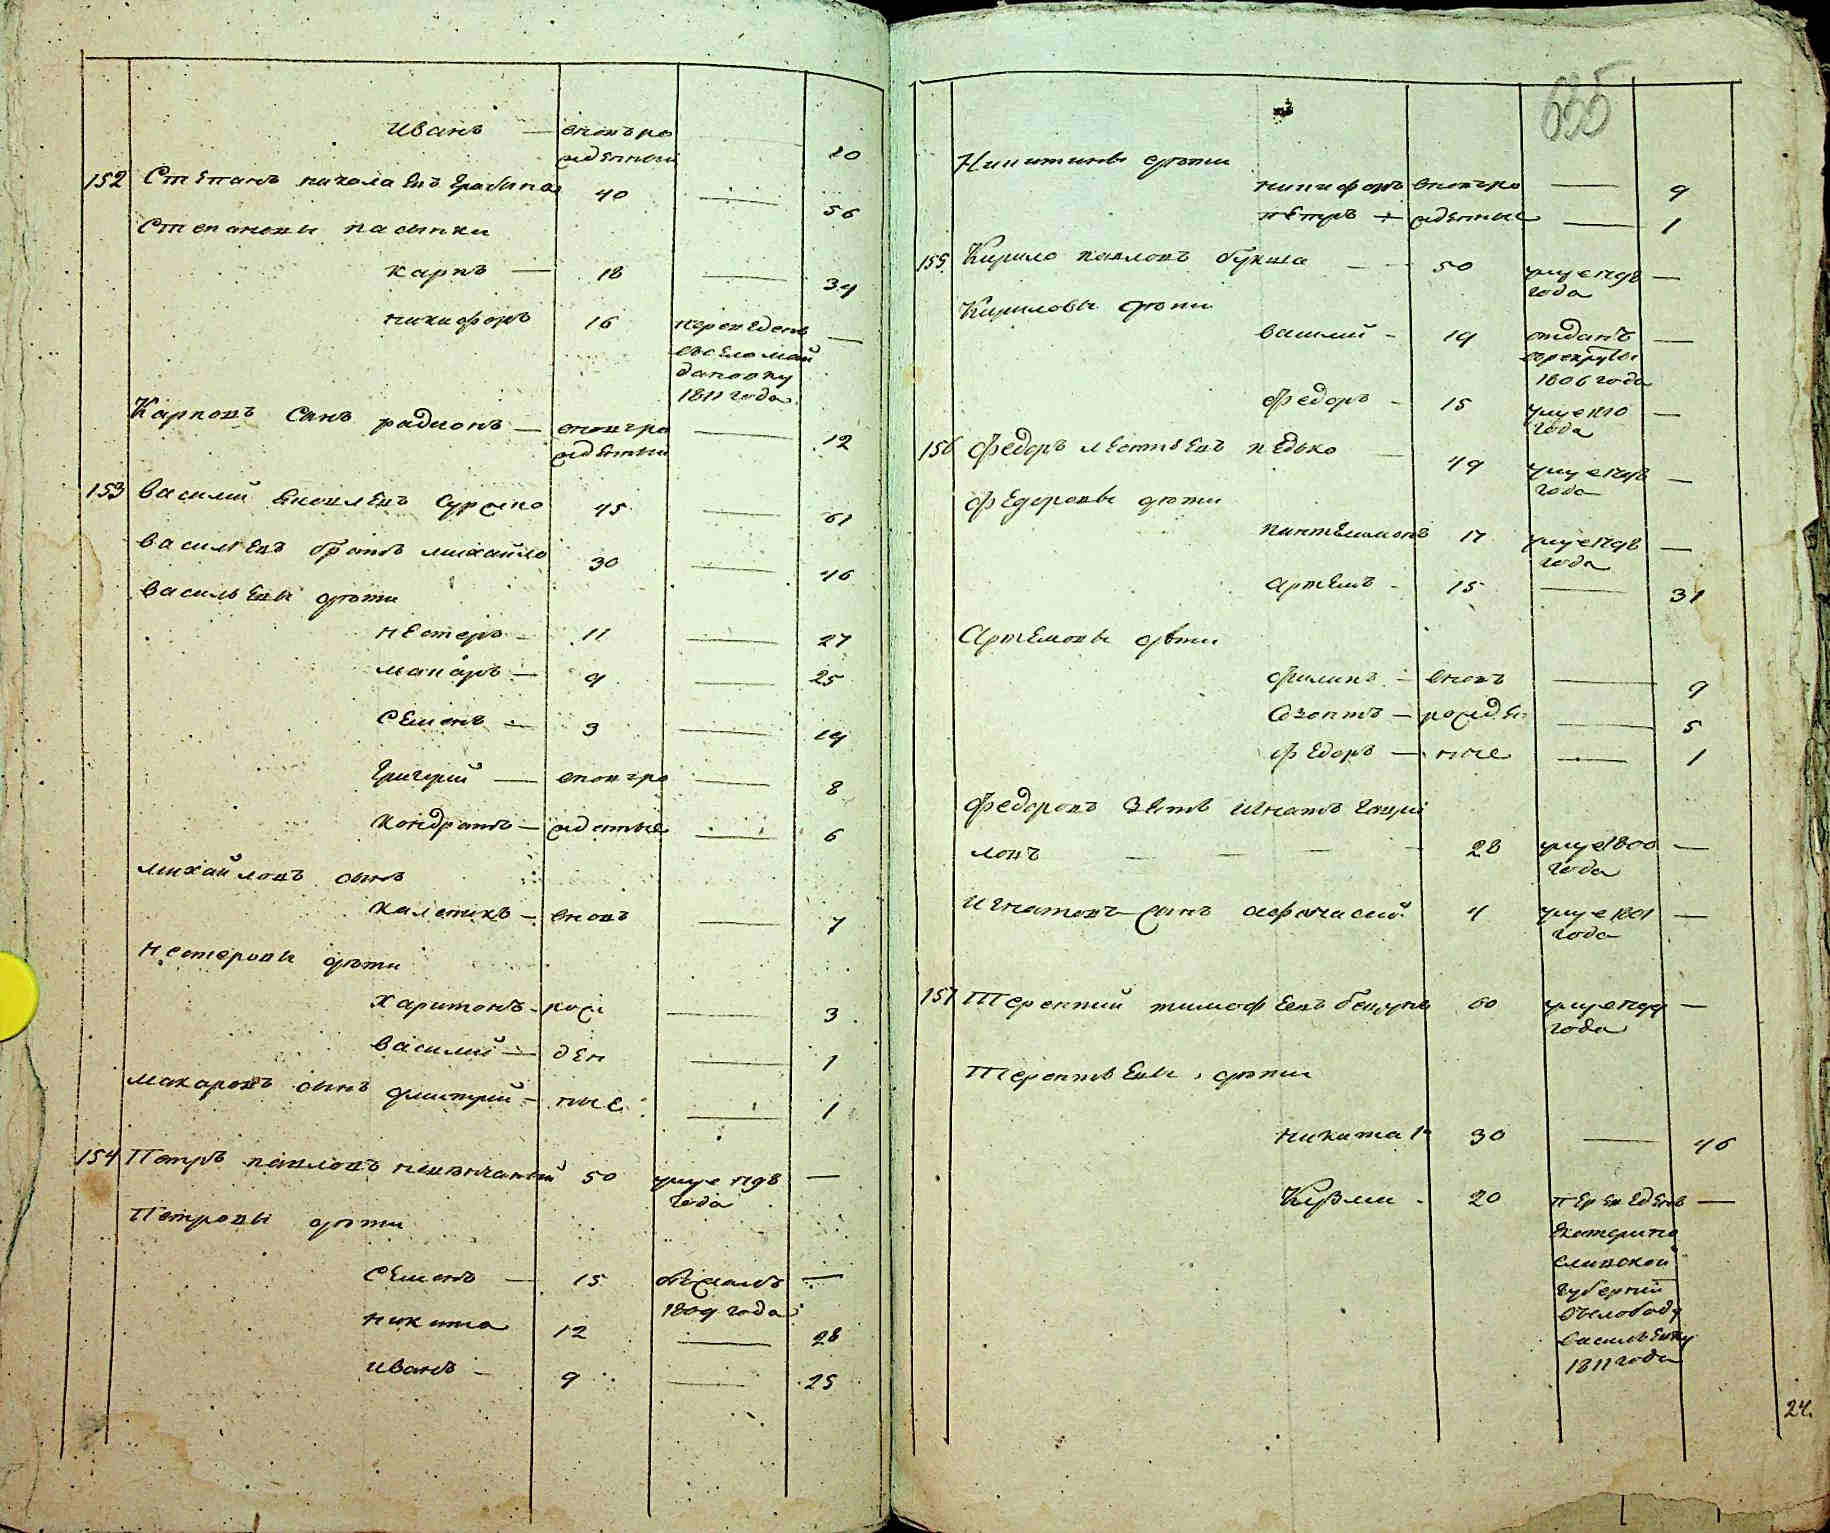 Иванъ — вновъро
жденный 10
152 Степанъ николаевъ 40 — 56
Степановы пасынки
карпъ — 18 — 34
никифоръ 16 переведенъ —
въ село май
дановку
1811 года
Карповъ Сынъ радионъ — вновъро — 12
жденный
153 василий яковлевъ суржко 45 — 61
васильевъ братъ михайло 30 — 46
васильевы дѣти
нестеръ — 11 — 27
макаръ — 9 — 25
семенъ — 3 — 19
григорий — вновъро — 8
кондратъ — жденные — 6
михайловъ сынъ
каленикъ — вновъ — 7
нестеровы дѣти
харитонъ — рож — 3
василий — ден — 1
макаровъ сынъ дмитрий — ные — 1
154 Петръ павловъ 50 умре 1798 —
года
Петровы дѣти
семенъ — 15 бѣжалъ —
1809 года
никита 12 — 28
иванъ — 9 — 25
635
Никитины дѣти
никифоръ вновъро — 9
петръ — жденные — 1
155 Кирило павловъ букша — 50 умре 1798 —
года
Кириловы дѣти
василий — 19 отданъ —
врекруты
1806 года
федоръ — 15 умре 1810 —
года
156 федоръ леонтьевъ педько — 49 умре 1798 —
года
федоровы дѣти
пантелимонъ 17 умре 1798 —
года
артемъ — 15 — 31
Артемовы дѣти
филипъ — вновъ — 9
Созонтъ — рожден — 5
федоръ — ные — 1
федоровъ зять игнатъ
ловъ — — — — 28 умре 1800 —
года
игнатовъ сынъ афанасий 4 умре 1801 —
года
157 Терентий тимофеевъ 60 умре 1799 —
года
Терентьевы дѣти
никита 30 — 46
Кузма — 20 переведенъ —
екатерино
славской
губернии
въ слободу
васильевку
1811 года
24.